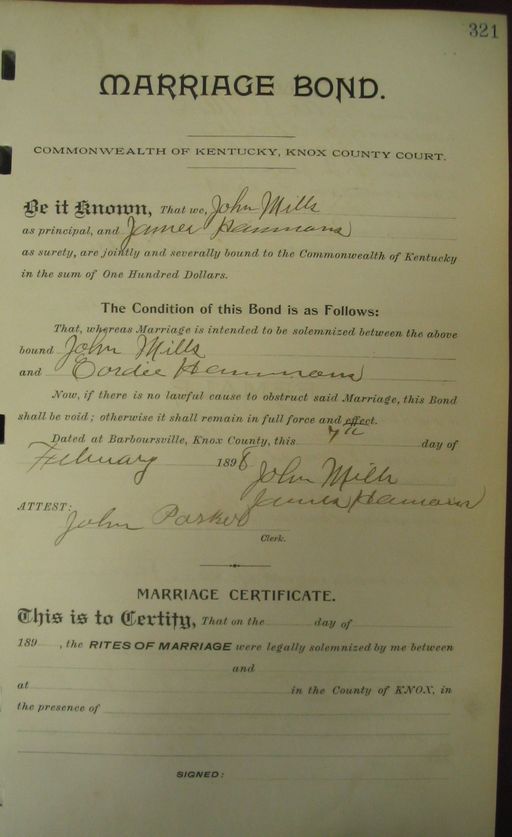 321
MARRIAGE BOND.
COMMONWEALTH OF KENTUCKY, KNOX COUNTY COURT.
Be it Known, That we, John Mills
as principal, and James Hammons
as surety, are jointly and severally bound to the Commonwealth of Kentucky
in the sum of One Hundred Dollars.
The Condition of this Bond is as Follows:
That, whereas Marriage is intended to be solemnized between the above
bound John Mills
and Cordie Hammons
Now, if there is no lawful cause to obstruct said Marriage, this Bond
shall be void; otherwise it shall remain in full force and effect.
Dated at Barboursville, Knox County, this 7th day of
February 1898
John Mills
James Hamons
ATTEST:
John Parker
Clerk.
MARRIAGE CERTIFICATE.
This is to Certify, That on the day of
189 , the RITES OF MARRIAGE were legally solemnized by me between
and
at in the County of KNOX, in
the presence of
SIGNED: